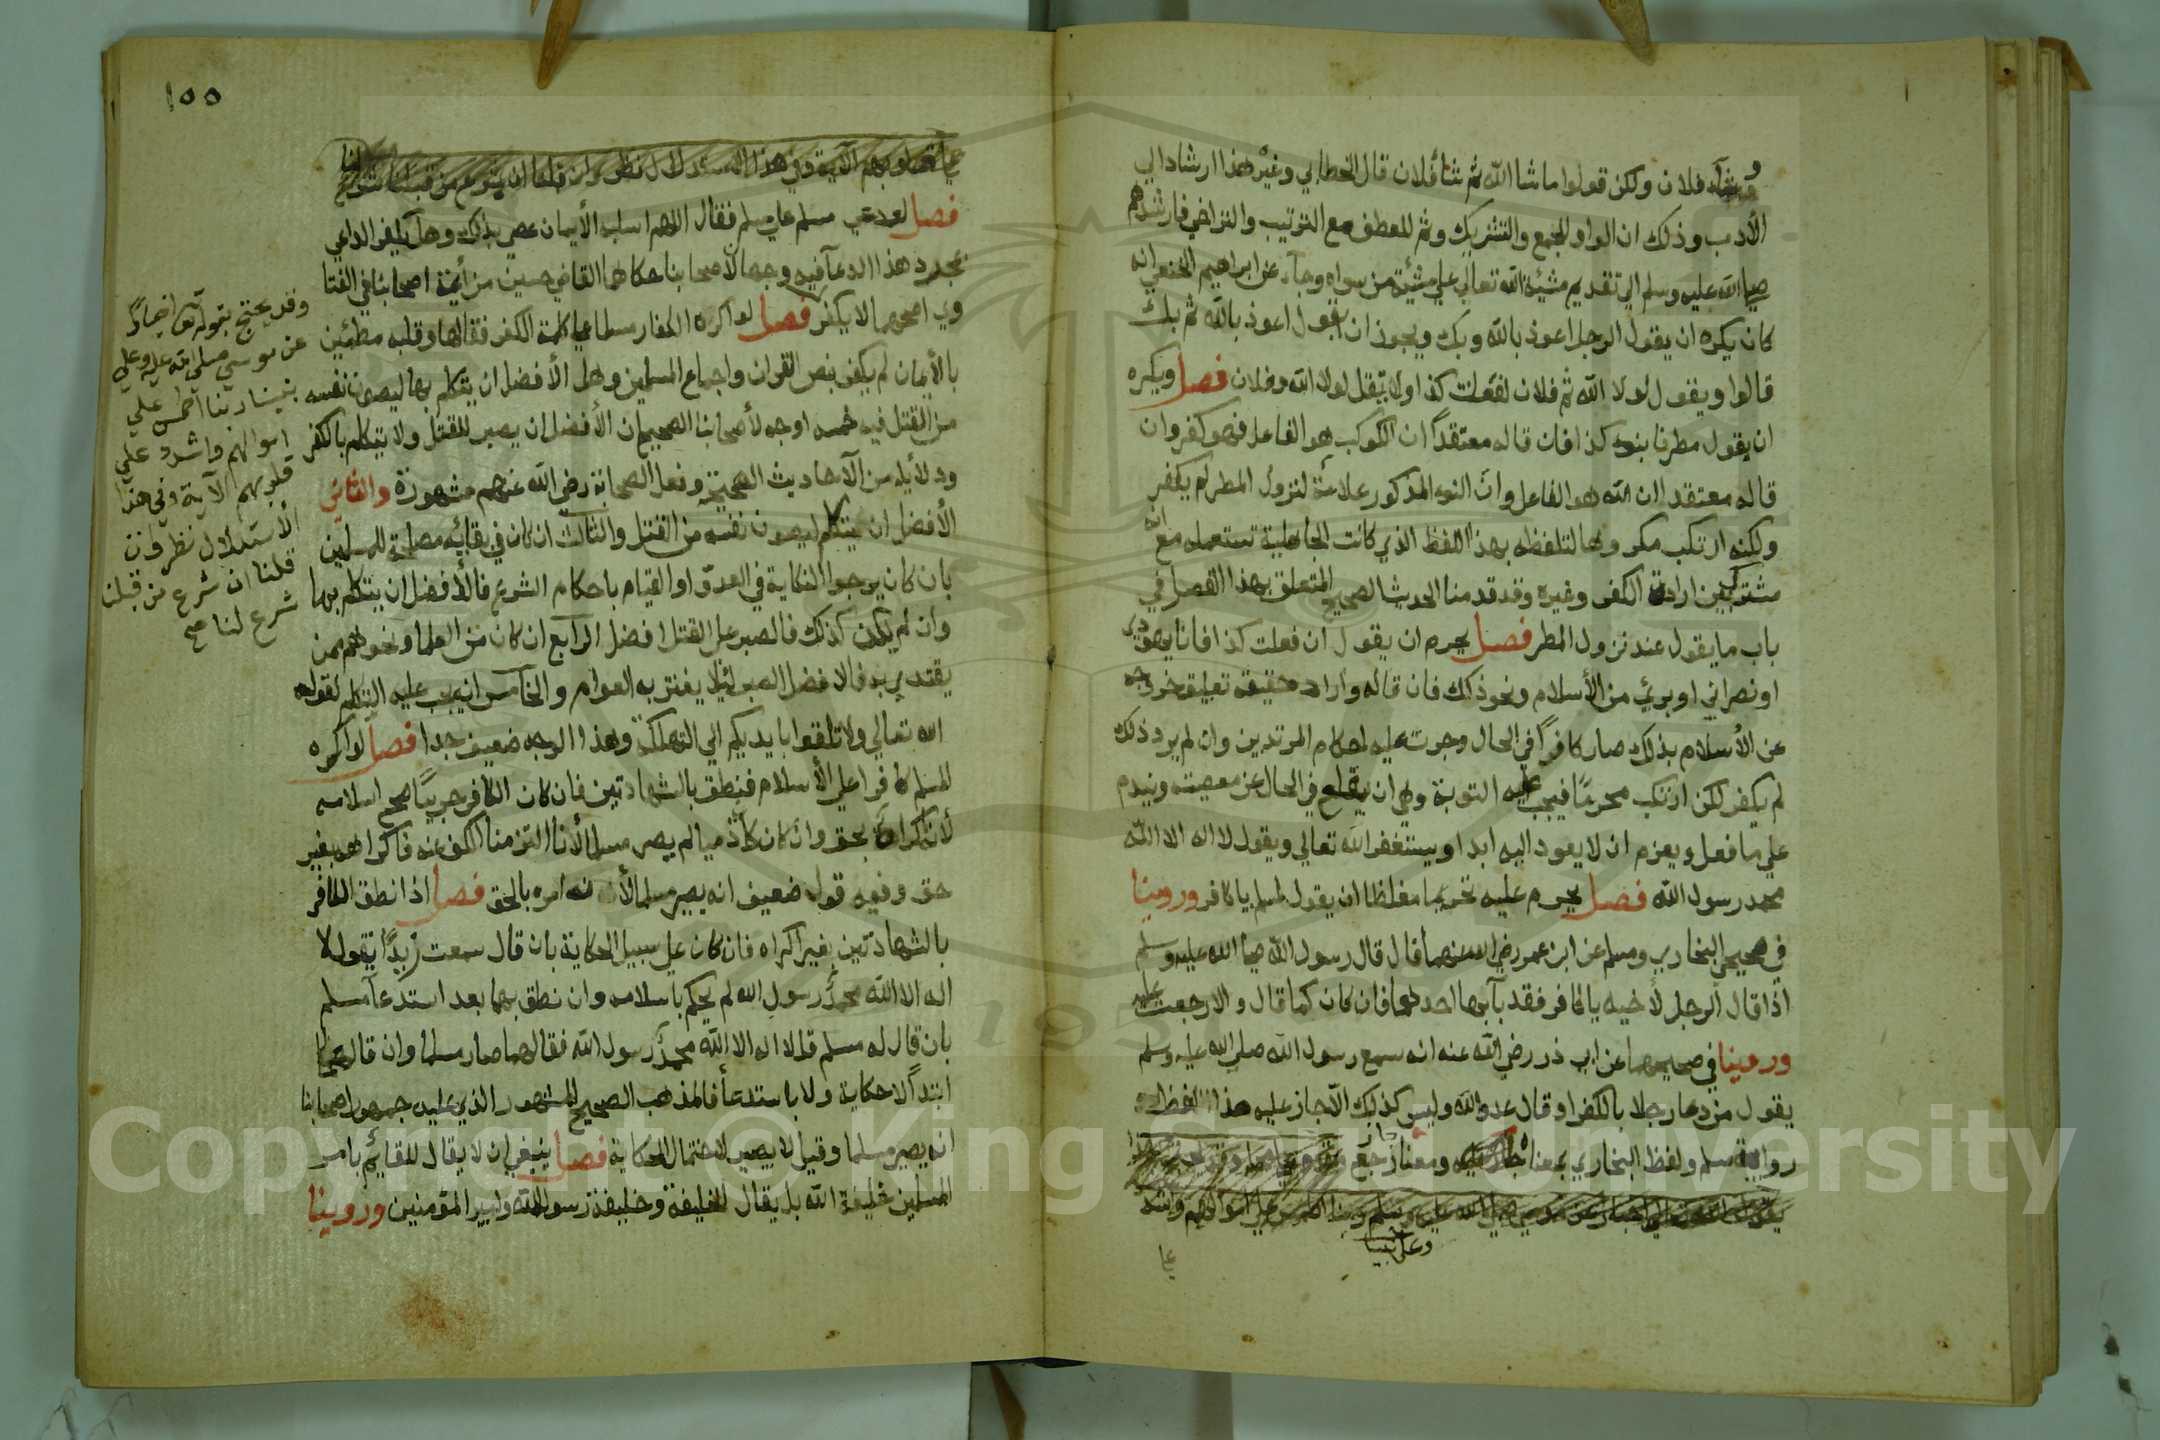 وشاء فلان ولكن قولوا ما شا الله ثم شأ فلان قال الخطابي وغيره هذا ارشاد الي
الأدب وذلك ان الواو للجمع والتشريك وثم للعطف مع الترتيب والتراخي فارشدهم
صلي الله عليه وسلم الي تقديم مشيئة الله تعالي علي مشيئة من سواه وجآء عن ابراهيم النخعي انه
كان يكره ان يقول الرجل اعوذ بالله وبك ويجوز ان يقول اعوذ بالله ثم بك
قالوا ويقول لولا الله ثم فلان لفعلت كذا ولا يقل لولا الله وفلان فصل ويكره
ان يقول مطرنا بنوء كذا فان قاله معتقداً ان الكوكب هو الفاعل فهو كفر وان
قاله معتقدا ان الله هو الفاعل وان النوء المذكور علامة لنزول المطر لم يكفر
ولكنه ارتكب مكروها لتلفظه بهذا اللفظ الذي كانت الجاهلية تستعمله مع انه
مشترك بين ارادة الكفر وغيره وقد قدمنا الحديث الصحيح المتعلق بهذا الفصل في
باب ما يقول عند نزول المطر فصل يحرم ان يقول ان فعلت كذا فانا يهودي
او نصراني او بريء من الأسلام ونحو ذلك فان قاله واراد حقيقة تعليق خروجه
عن الأسلام بذلك صار كافراً في الحال وجرت عليه احكام المرتدين وان لم يرد ذلك
لم يكفر لكن ارتكب محرمًا فيجب عليه التوبة وهي ان يقلع في الحال عن معصيته ويندم
علي ما فعل ويعزم ان لا يعود اليه ابدا ويستغفر الله تعالي ويقول لا اله الا الله
محمد رسول الله فصل يحرم عليه تحريما مغلظا ان يقول لمسلم يا كافر وروينا
في صحيحي البخاري ومسلم عن ابن عمر رضي الله عنهما قال قال رسول الله صلي الله عليه وسلم
اذا قال الرجل لأخيه يا كافر فقد بآء بها احدهما فان كان كما قال والا رجعت عليه
وروينا في صحيحهما عن ابي ذر رضي الله عنه انه سمع رسول الله صلي الله عليه وسلم
يقول من دعا رجلا بالكفر او قال عدو الله وليس كذلك الا حار عليه هذا لفظ
رواية مسلم ولفظ البخاري بمعناه ومعنا حار رجع
وعلى نبينا
علي
١٥٥
علي قلوبهم الآية وفي هذا الاستدلال نظر وان قلنا ان شرع من قبلنا شرع لنا
فصل لو دعي مسلم علي مسلم فقال اللهم اسلبه الأيمان عصي بذلك وهل يكفر الداعي
بمجرد هذا الدعآ فيه وجهان لاصحابنا حكاهما القاضي حسين من أئمة اصحابنا في الفتا
وي اصحهما لا يكفر فصل لو اكره الكفار مسلما علي كلمة الكفر فقالها وقلبه مطمئين
بالأيمان لم يكفر بنص القران واجماع المسلمين وهل الأفضل ان يتكلم بها ليصون نفسه
من القتل فيه خمسه اوجه لأصحابنا الصحيح ان الأفضل ان يصبر للقتل ولا يتكلم بالكفر
ودلائله من الآحاديث الصحيحة وفعل الصحابة رضي الله عنهم مشهورة والثاني
الأفضل ان يتكلم ليصون نفسه من القتل والثالث ان كان في بقائه مصلحة للمسلمين
بان كان يرجوا النكاية في العدو او القيام باحكام الشرع فالأفضل ان يتكلم بها
وان لم يكن كذلك فالصبر علي القتل افضل الرابع ان كان من العلما ونحوهم ممن
يقتدي به فالافضل الصبر لئلا يغتر به العوام والخامس انه يجب عليه التكلم لقول
الله تعالي ولا تلقوا بايديكم الي التهلكة وهذا الوجه ضعيف جدا فصل لو اكره
المسلم كافرا علي الأسلام فنطق بالشهادتين فان كان الكافر حربيًا صح اسلامه
لأنه اكراه بحق وان كان ذميا لم يصر مسلما لأنا التزمنا الكف عنه فاكراهه بغير
حق وفيه قول ضعيف انه يصير مسلما لأنه امره بالحق فصل اذا نطق الكافر
بالشهادتين بغير اكراه فان كان علي سبيل الحكاية بان قال سمعت زيدًا يقول لا
اله الا الله محمد رسول الله لم يحكم باسلامه وان نطق بهما بعد استدعآ مسلم
بان قال له مسلم قل لا اله الا الله محمد رسول الله فقالهما صار مسلما وان قالهما
ابتدآً لا حكاية ولا باستدعآ فالمذهب الصحيح المشهور الذي عليه جمهور اصحابنا
انه يصير مسلما وقيل لا يصير لاحتمال الحكاية فصل ينبغي ان لا يقال للقائم بامر
المسلمين خليفة الله بل يقال الخليفة وخليفة رسول الله وامير المؤمنين وروينا
وقد يحتج بقوله تعالى اخباراً
عن موسى صلى الله عليه وعلى
نبينا ربنا اطمس على
اموالهم واشدد على
قلوبهم الآية وفي هذا
الاستدلال نظر وان
قلنا ان شرع من قبلنا
شرع لنا صح
Copyright © King Saud University
1957